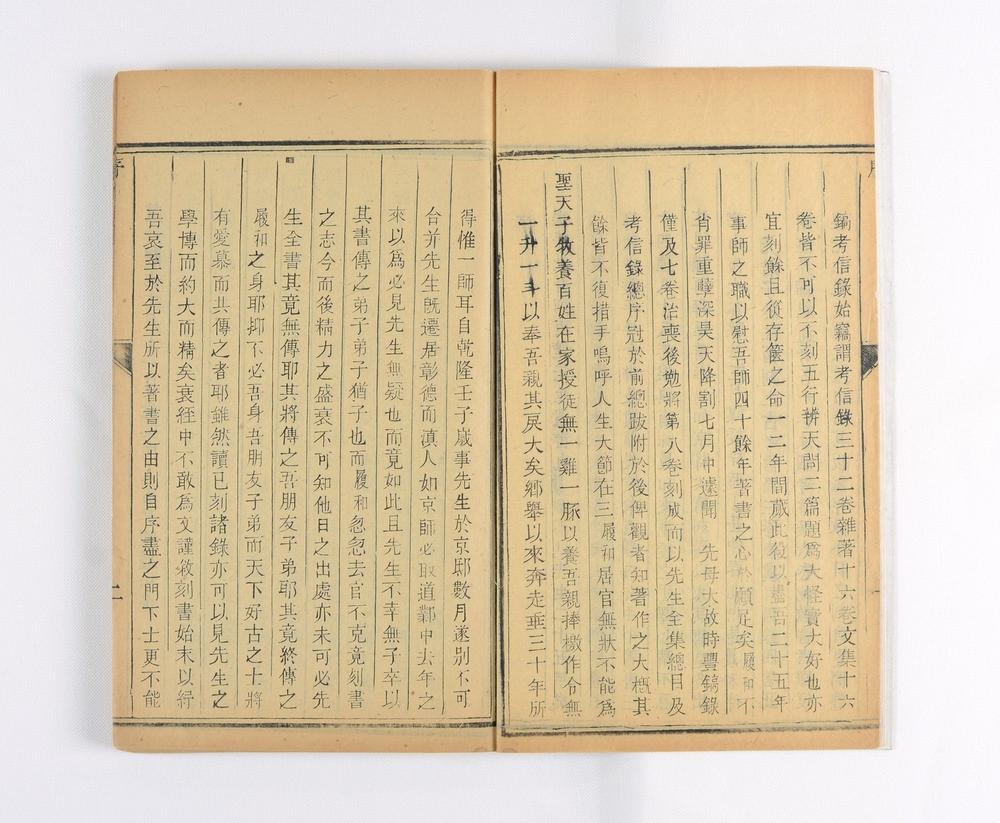 鎬考信錄始竊謂考信錄三十二卷雜著十六卷文集十六
卷皆不可以不刻五行辨天問二篇題爲大怪實大好也亦
宜刻餘且從存篋之命一二年間蕆此役以盡吾二十五年
事師之職以慰吾師四十餘年著書之心於願足矣履和不
肖罪重孽深昊天降割七月中遽聞 先母大故時豐鎬錄
僅及七卷治喪後勉將第八卷刻成而以先生全集總目及
考信錄總序冠於前總跋附於後俾觀者知著作之大槪其
餘皆不復措手嗚呼人生大節在三履和居官無狀不能爲
聖天子敎養百姓在家授徒無一雞一豚以養吾親捧檄作令無
一升一斗以奉吾親其戾大矣鄉舉以來奔走垂三十年所
得惟一師耳自乾隆壬子歲事先生於京邸數月遂別不可
合并先生旣遷居彰德而滇人如京師必取道鄴中去年之
來以爲必見先生無疑也而竟如此且先生不幸無子卒以
其書傳之弟子弟子猶子也而履和忽忽去官不克竟刻書
之志今而後精力之盛衰不可知他日之出處亦未可必先
生全書其竟無傳耶其將傳之吾朋友子弟耶其竟終傳之
履和之身耶抑不必吾身吾朋友子弟而天下好古之士將
有愛慕而共傳之者耶雖然讀已刻諸錄亦可以見先生之
學博而約大而精矣衰絰中不敢爲文謹敘刻書始末以紓
吾哀至於先生所以著書之由則自序盡之門下士更不能
序
二